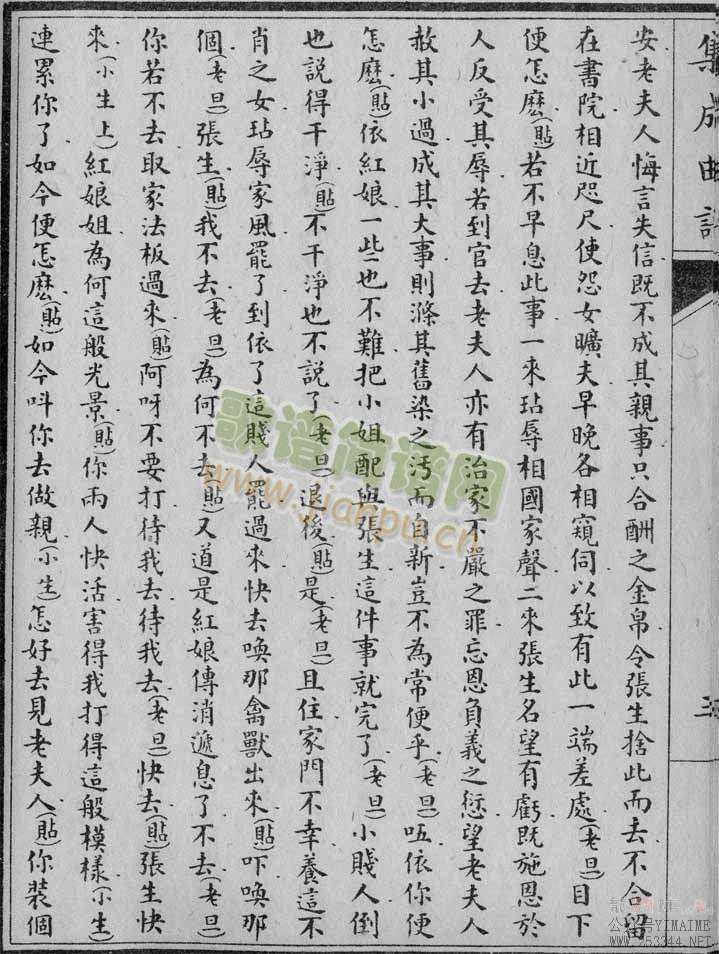 集成曲譜
安老夫人悔言失信既不成其親事只合酬之金帛令張生捨此而去不合留
在書院相近咫尺使怨女曠夫早晚各相窺伺以致有此一端差處(老旦)目下
便怎麽(貼)若不早息此事一來玷辱相國家聲二來張生名望有虧既施恩於
人反受其辱若到官去老夫人亦有治家不嚴之罪忘恩負義之愆望老夫人
赦其小過成其大事則滌其舊染之汚而自新豈不為常便乎(老旦)㕶依你便
怎麽(貼)依紅娘一些也不難把小姐配與張生這件事就完了(老旦)小賤人倒
也説得干淨(貼)不干淨也不説了(老旦)退後(貼)是(老旦)且住家門不幸養這不
肖之女玷辱家風罷了到依了這賤人罷過來快去喚那禽獸出來(貼)吓喚那
個(老旦)張生(貼)我不去(老旦)為何不去(貼)又道是紅娘傳消遞息了不去(老旦)
你若不去取家法板過來(貼)阿呀不要打待我去待我去(老旦)快去(貼)張生快
來(小生上)紅娘姐為何這般光景(貼)你兩人快活害得我打得這般模樣(小生)
連累你了如今便怎麽(貼)如今叫你去做親(小生)怎好去見老夫人(貼)你装個
歌谱简谱网
www.jianpu.cn
公众号YIMAIME
WWW.253344.NET